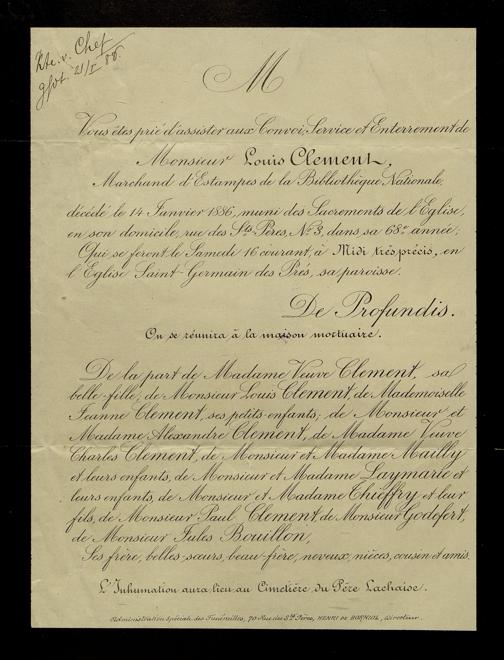 v. Chef
21/I 86.
M
Vous êtes prié d'assister aux Convoi, Service et Enterrement de
Monsieur Louis Clement,
Marchand d'Estampes de la Bibliothèque Nationale,
décédé le 14 Janvier 1886, muni des Sacrements de l'Église,
en son domicile, rue des Sts Pères, No 3, dans sa 68e année;
Qui se feront le Samedi 16 courant, à Midi très précis, en
l'Église Saint-Germain des Prés, sa paroisse.
De Profundis.
On se réunira à la maison mortuaire.
De la part de Madame Veuve Clement, sa
belle-fille; de Monsieur Louis Clement, de Mademoiselle
Jeanne Clement, ses petits-enfants; de Monsieur et
Madame Alexandre Clement, de Madame Veuve
Charles Clement, de Monsieur et Madame Mailly
et leurs enfants, de Monsieur et Madame Laymarie et
leurs enfants, de Monsieur et Madame Thieffry et leur
fils, de Monsieur Paul Clement, de Monsieur Godefert,
de Monsieur Jules Bouillon,
Ses frère, belles-sœurs, beau-frère, neveux, nièces, cousin et amis.
L'Inhumation aura lieu au Cimetière du Père Lachaise.
Administration spéciale des Funérailles, 70 Rue des Sts Pères, HENRI DE BORNIOL, Directeur.